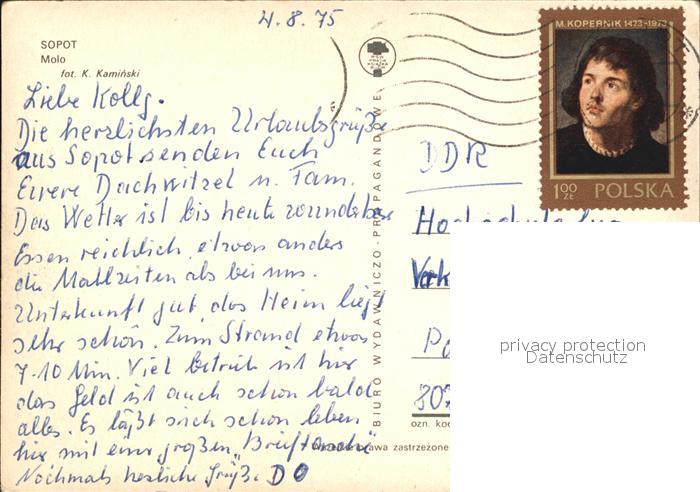 4.8.75
SOPOT
Molo
fot. K. Kamiński
Liebe Kollg.
Die herzlichsten Urlaubsgrüße
aus Sopot senden Euch
Euere Dachwitzel u. Fam.
Das Wetter ist bis heute wunderbar
Essen reichlich, etwas anders
die Mahlzeiten als bei uns.
Unterkunft gut, das Heim liegt
sehr schön. Zum Strand etwas
7-10 Min. Viel betrieb ist hier
das Geld ist auch schon bald
alles. Es läßt sich schon leben
hier mit einer großen „Brieftasche"
Nochmals herzliche Grüße D
BIURO WYDAWNICZO-PROPAGANDOWE
M. KOPERNIK 1473-1973
1,00 ZŁ POLSKA
DDR
Hochschule
Verk
Po
807
ozn. kod
zastrzeżone
privacy protection
Datenschutz